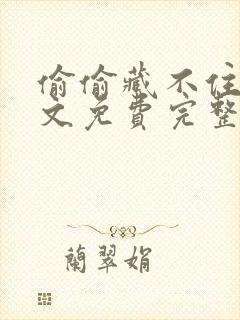 偷偷藏不住
文免费完整
蘭翠娟